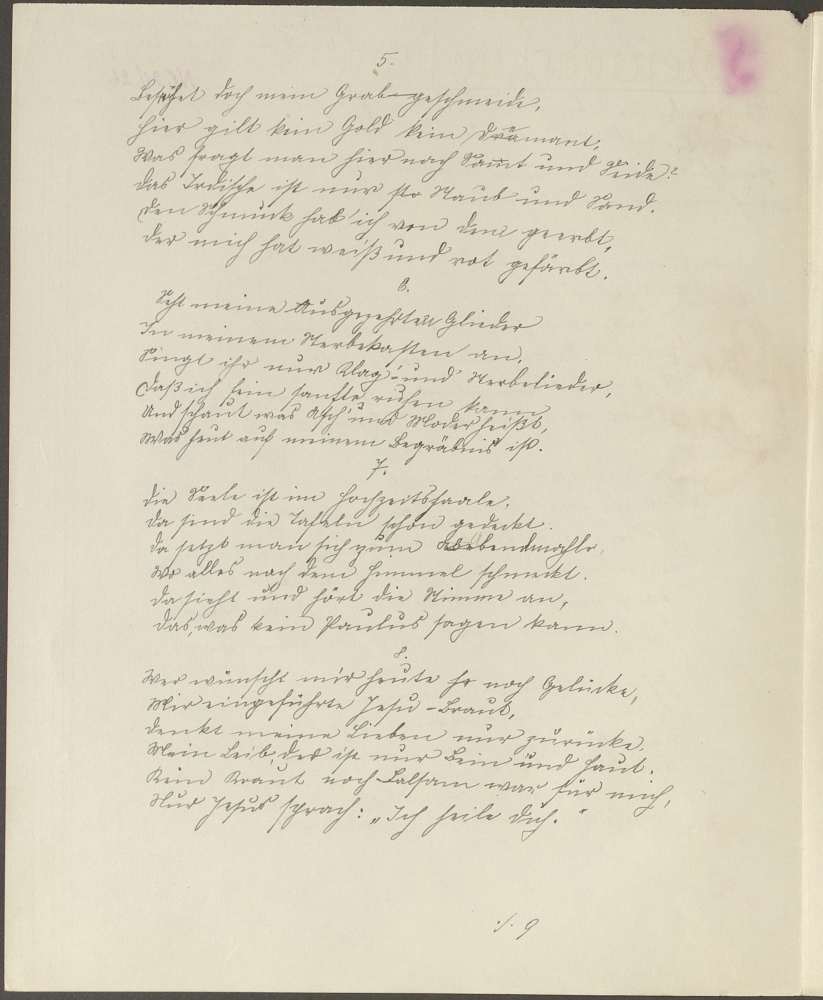 5.
Besehet doch mein Grab-geschmeide,
Hier gilt kein Gold kein Diamant;
Was fragt man hier nach Samt und Seide?
Das Irdische ist nur Staub und Sand.
Den Schmuck hab' ich von dem geerbt,
Der mich hat weiß und rot gefärbt.
6.
Seht meine Ausgezehrten Glieder
In meinem Sterbekasten an.
Singt ihr nur Klag'- und Sterbelieder,
Daß ich fein sanfte ruhen kann
Und schaut was Asch' und Moder heißt,
Was heut auf meinem Begräbnis ist.
7.
Die Seele ist im Hochzeitssaale.
Da sind die Tafeln schon gedeckt.
Da setzt man sich zum Abendmahle,
Wo alles nach dem Himmel schmeckt.
Da sieht und hört die Stimme an,
Das, was kein Paulus sagen kann.
8.
Wer wünscht mir heute noch Gelücke,
Mir eingeführte Jesu-Braut,
Denkt meine Lieben nur zurücke.
Mein Leib, der ist nur Bein und Haut.
Kein Kraut noch Balsam war für mich,
Nur Jesus sprach: „Ich heile dich."
./. 9